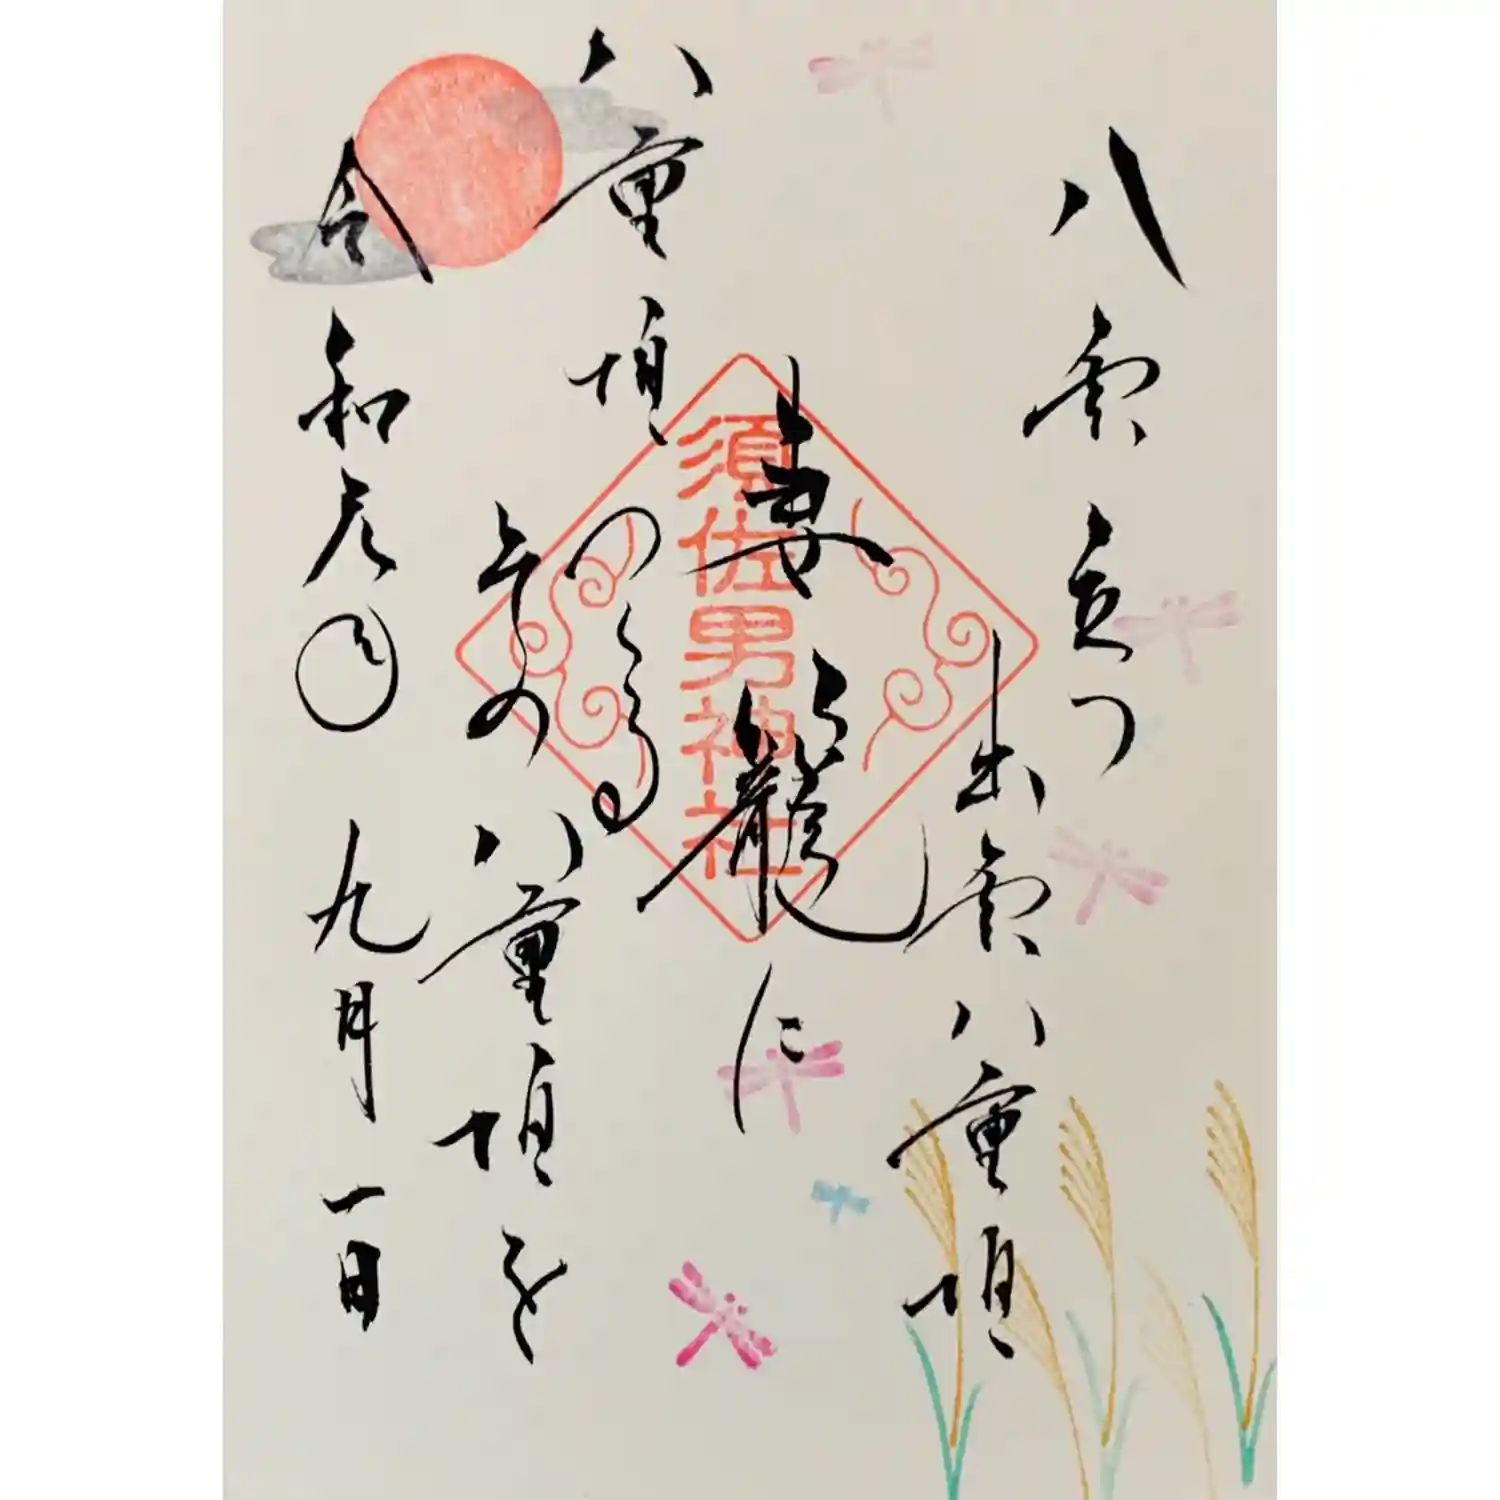 八雲立つ
出雲八重垣
妻籠に
八重垣つくる
その八重垣を
令和元年九月一日
須佐男神社